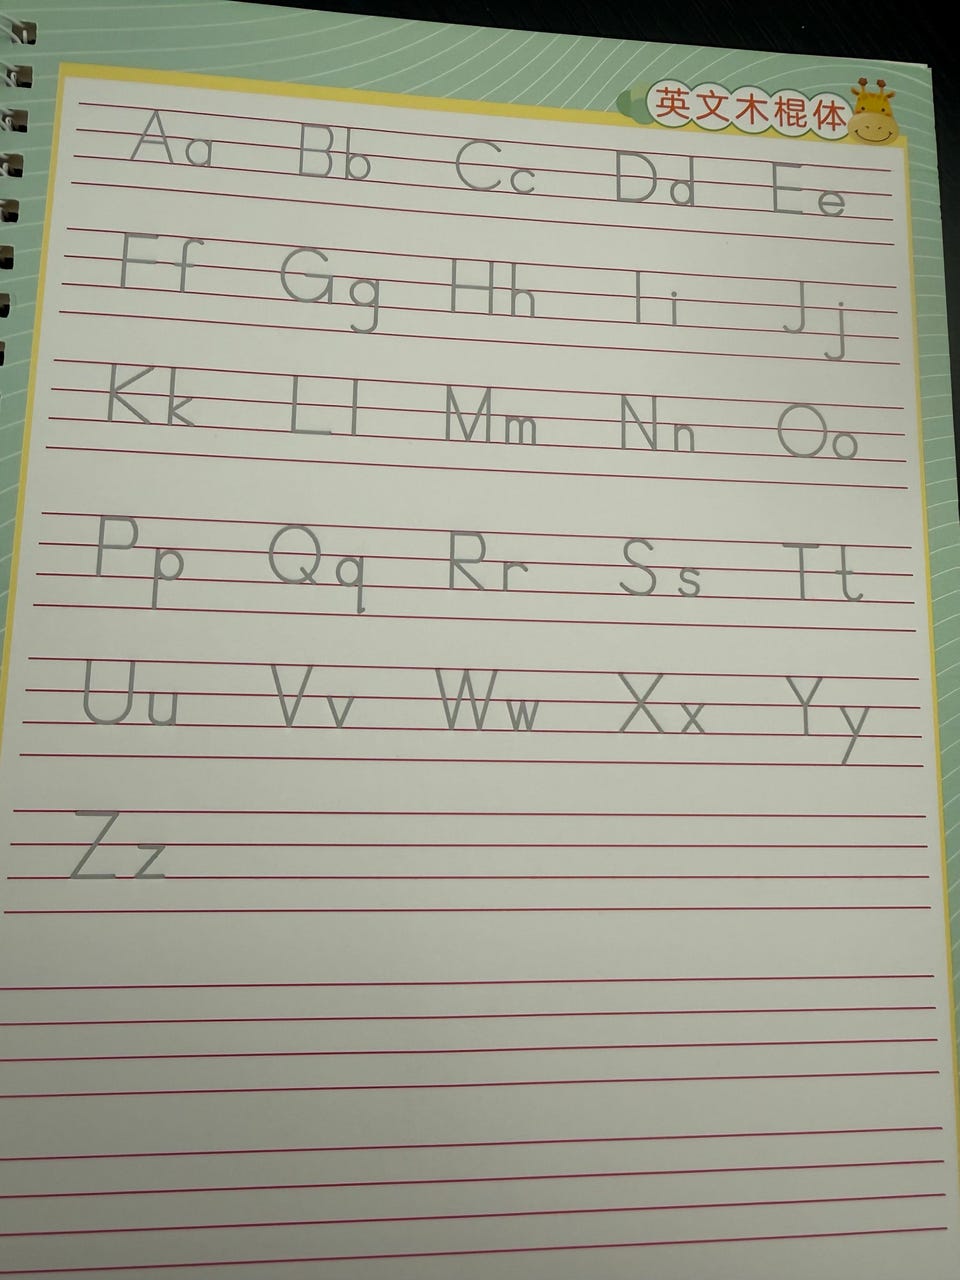 英文木棍体
Aa Bb Cc Dd Ee
Ff Gg Hh Ii Jj
Kk Ll Mm Nn Oo
Pp Qq Rr Ss Tt
Uu Vv Ww Xx Yy
Zz